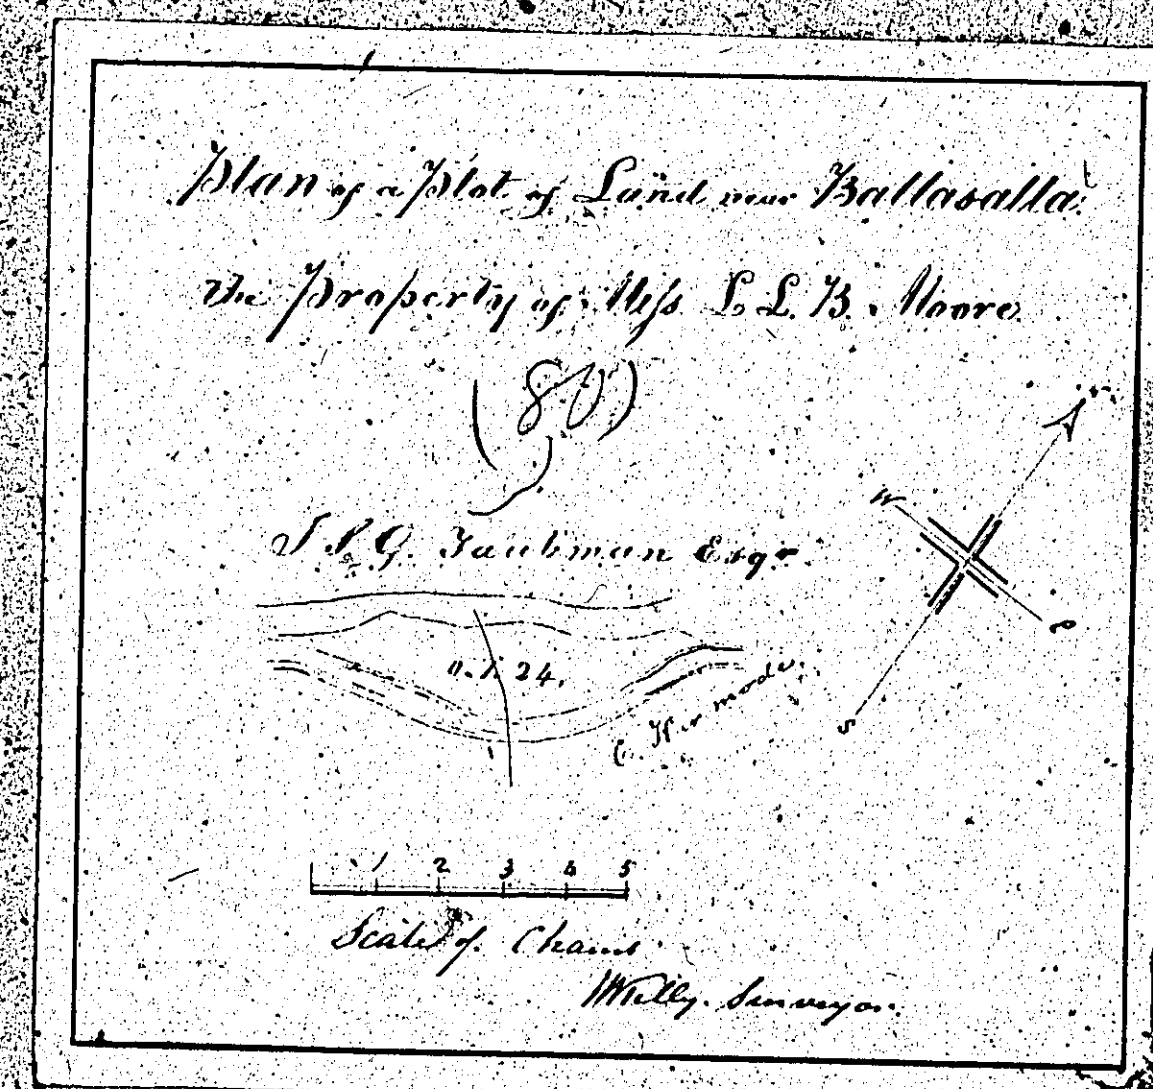 Plan of a Plot of Land near Ballasalla
the Property of Miss L. L. B. Moore
(80)
J. S. G. Taubman Esqr
W
S
0. 1. 24.
C. Kermode.
1 2 3 4 5
Scale of Chains
W Kelly. Surveyor.